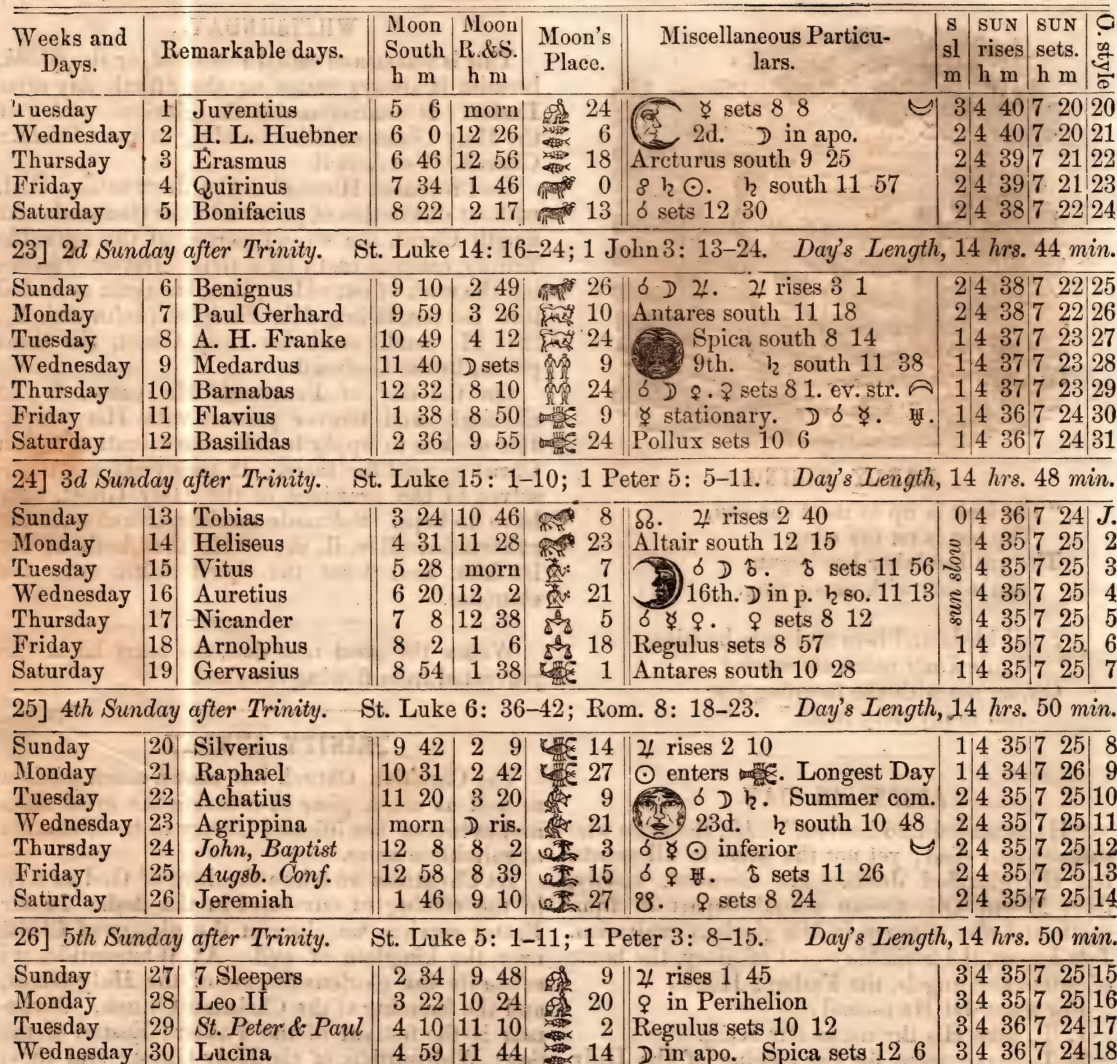 Weeks and Days. Remarkable days. Moon South h m Moon R.&S. h m Moon's Place. Miscellaneous Particulars. s sl m SUN rises h m SUN sets. h m O. style
Tuesday 1 Juventius 5 6 morn 24 ☿ sets 8 8 3 4 40 7 20 20
Wednesday 2 H. L. Huebner 6 0 12 26 6 2d. ☽ in apo. 2 4 40 7 20 21
Thursday 3 Erasmus 6 46 12 56 18 Arcturus south 9 25 2 4 39 7 21 22
Friday 4 Quirinus 7 34 1 46 0 ☍ ♄ ☉. ♄ south 11 57 2 4 39 7 21 23
Saturday 5 Bonifacius 8 22 2 17 13 ☌ sets 12 30 2 4 38 7 22 24
23] 2d Sunday after Trinity. St. Luke 14: 16–24; 1 John 3: 13–24. Day's Length, 14 hrs. 44 min.
Sunday 6 Benignus 9 10 2 49 26 ☌ ☽ ♃. ♃ rises 3 1 2 4 38 7 22 25
Monday 7 Paul Gerhard 9 59 3 26 10 Antares south 11 18 2 4 38 7 22 26
Tuesday 8 A. H. Franke 10 49 4 12 24 Spica south 8 14 1 4 37 7 23 27
Wednesday 9 Medardus 11 40 ☽ sets 9 9th. ♄ south 11 38 1 4 37 7 23 28
Thursday 10 Barnabas 12 32 8 10 24 ☌ ☽ ♀. ♀ sets 8 1. ev. str. 1 4 37 7 23 29
Friday 11 Flavius 1 38 8 50 9 ☿ stationary. ☽ ☌ ☿. ♅. 1 4 36 7 24 30
Saturday 12 Basilidas 2 36 9 55 24 Pollux sets 10 6 1 4 36 7 24 31
24] 3d Sunday after Trinity. St. Luke 15: 1–10; 1 Peter 5: 5–11. Day's Length, 14 hrs. 48 min.
Sunday 13 Tobias 3 24 10 46 8 ☊. ♃ rises 2 40 0 4 36 7 24 J.
Monday 14 Heliseus 4 31 11 28 23 Altair south 12 15 sun slow 4 35 7 25 2
Tuesday 15 Vitus 5 28 morn 7 ☌ ☽ ♁. ♁ sets 11 56 4 35 7 25 3
Wednesday 16 Auretius 6 20 12 2 21 16th. ☽ in p. ♄ so. 11 13 4 35 7 25 4
Thursday 17 Nicander 7 8 12 38 5 ☌ ☿ ♀. ♀ sets 8 12 4 35 7 25 5
Friday 18 Arnolphus 8 2 1 6 18 Regulus sets 8 57 1 4 35 7 25 6
Saturday 19 Gervasius 8 54 1 38 1 Antares south 10 28 1 4 35 7 25 7
25] 4th Sunday after Trinity. St. Luke 6: 36–42; Rom. 8: 18–23. Day's Length, 14 hrs. 50 min.
Sunday 20 Silverius 9 42 2 9 14 ♃ rises 2 10 1 4 35 7 25 8
Monday 21 Raphael 10 31 2 42 27 ☉ enters ♋. Longest Day 1 4 34 7 26 9
Tuesday 22 Achatius 11 20 3 20 9 ☌ ☽ ♄. Summer com. 2 4 35 7 25 10
Wednesday 23 Agrippina morn ☽ ris. 21 23d. ♄ south 10 48 2 4 35 7 25 11
Thursday 24 John, Baptist 12 8 8 2 3 ☌ ☿ ☉ inferior 2 4 35 7 25 12
Friday 25 Augsb. Conf. 12 58 8 39 15 ☌ ♀ ♅. ♁ sets 11 26 2 4 35 7 25 13
Saturday 26 Jeremiah 1 46 9 10 27 ☋. ♀ sets 8 24 2 4 35 7 25 14
26] 5th Sunday after Trinity. St. Luke 5: 1–11; 1 Peter 3: 8–15. Day's Length, 14 hrs. 50 min.
Sunday 27 7 Sleepers 2 34 9 48 9 ♃ rises 1 45 3 4 35 7 25 15
Monday 28 Leo II 3 22 10 24 20 ♀ in Perihelion 3 4 35 7 25 16
Tuesday 29 St. Peter & Paul 4 10 11 10 2 Regulus sets 10 12 3 4 36 7 24 17
Wednesday 30 Lucina 4 59 11 44 14 ☽ in apo. Spica sets 12 6 3 4 36 7 24 18